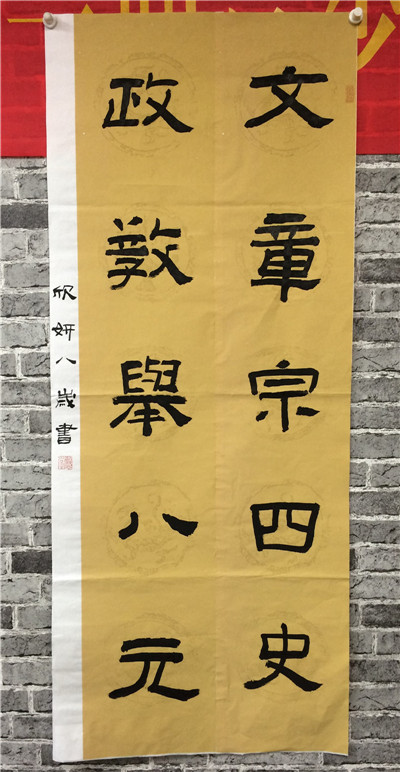 文章宗四史
政教舉八元
欣妍八歲書